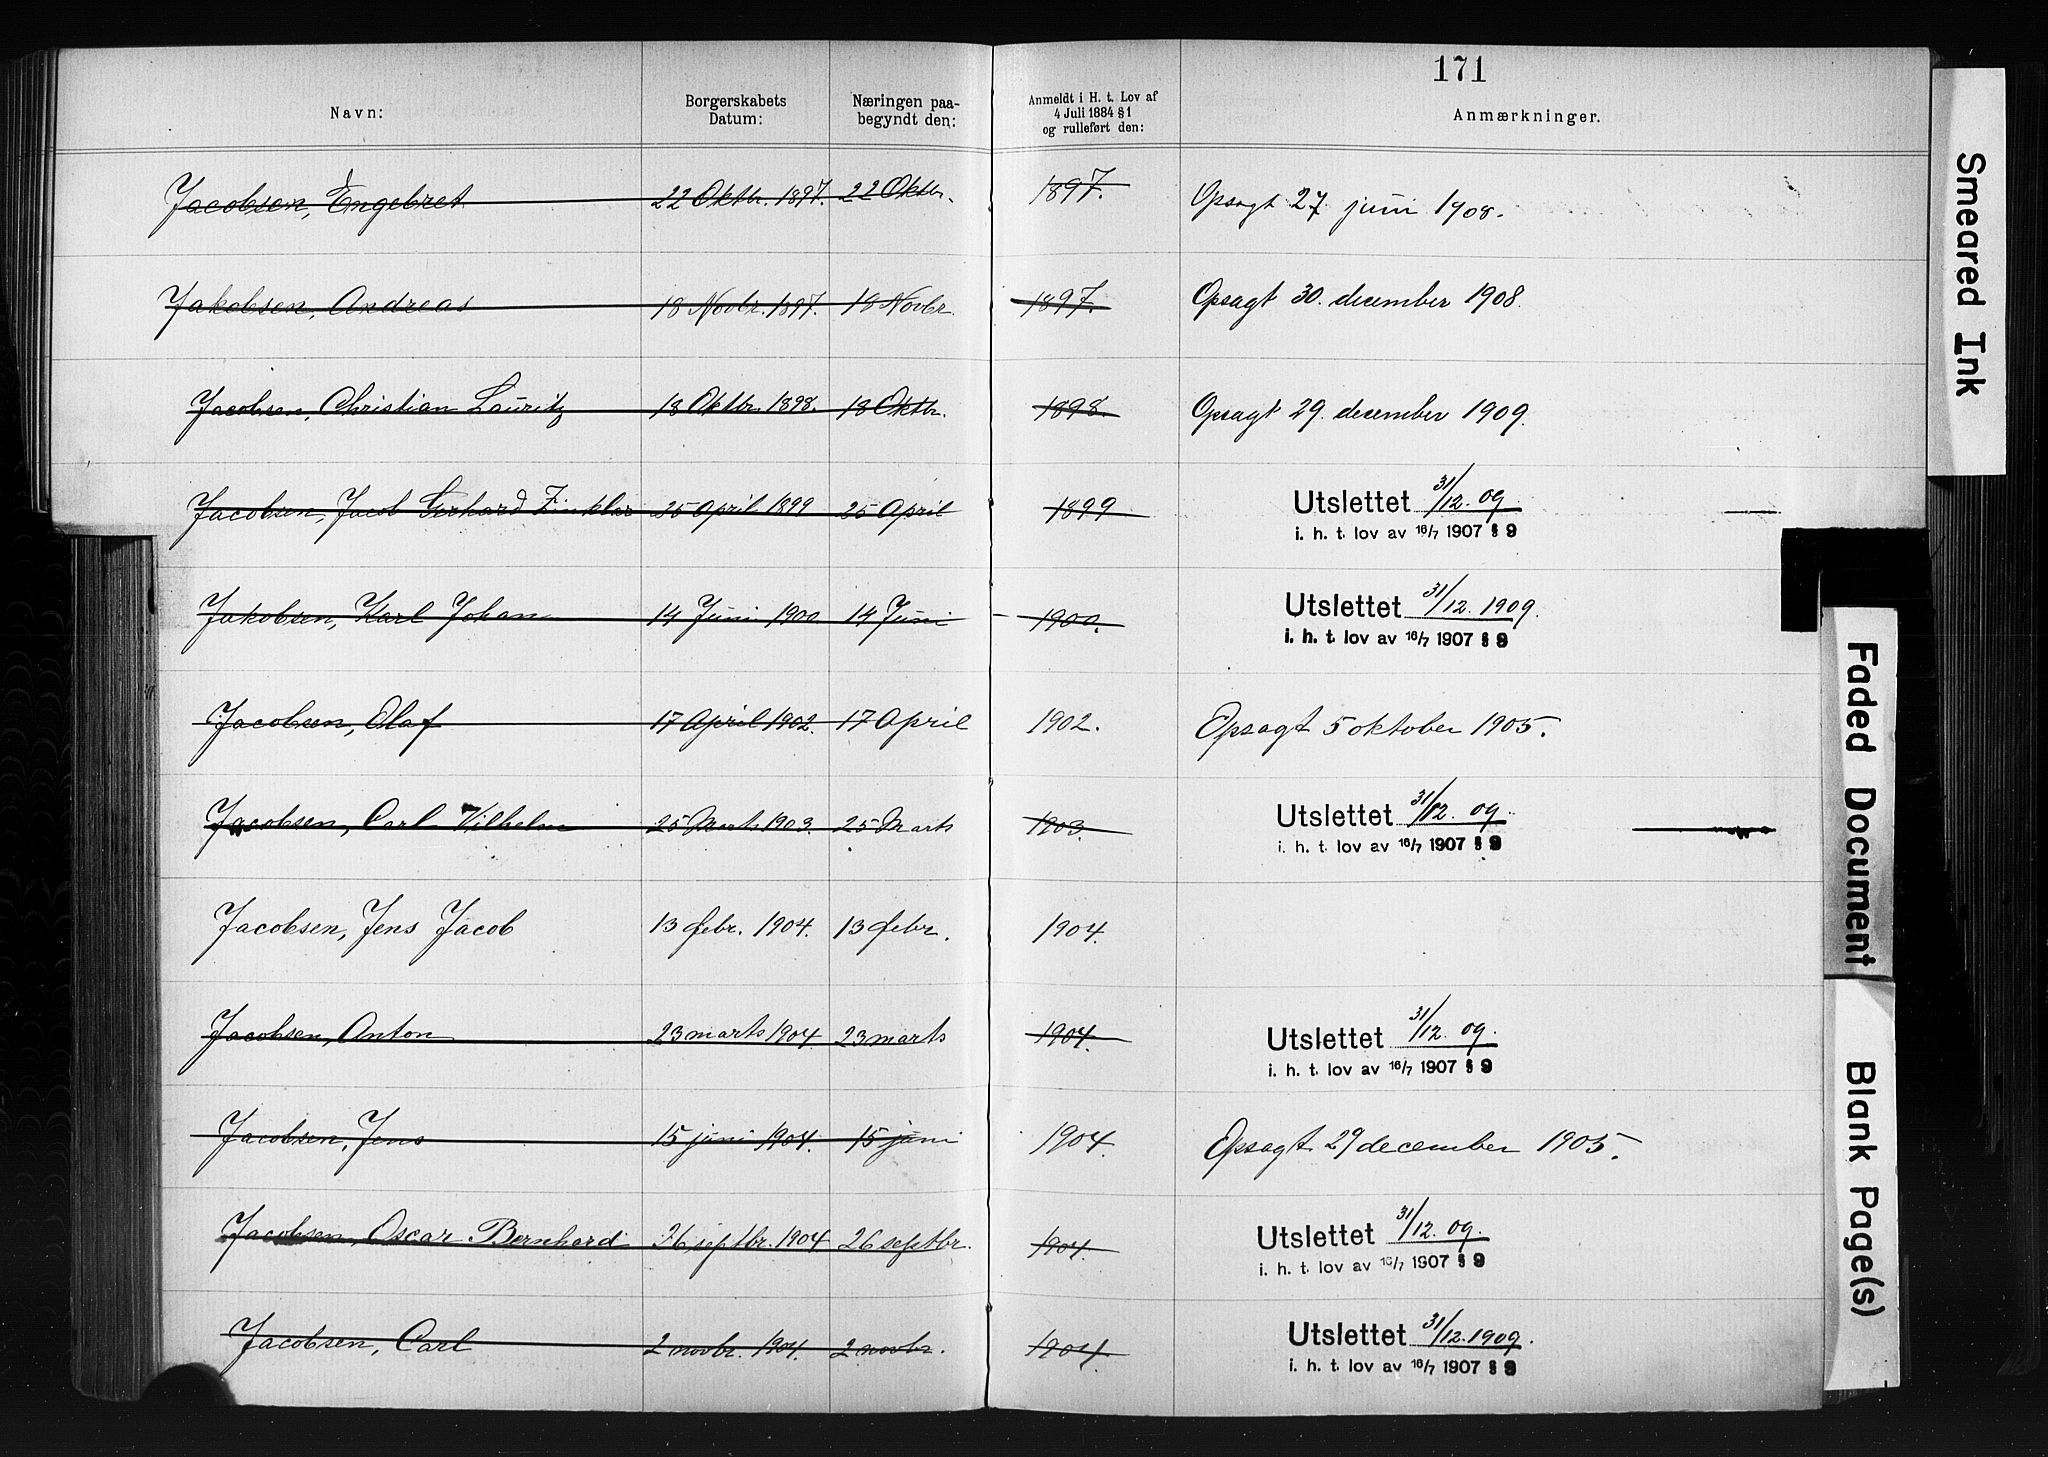 171
Navn: Borgerskabets Datum: Næringen paa- begyndt den: Anmeldt i H. t. Lov af 4 Juli 1884 § 1 og rulleført den: Anmærkninger.
Jacobsen, Engebret 22 Oktbr. 1897. 22 Oktbr. 1897. Opsagt 27 juni 1908.
Jakobsen, Andreas 18 Novbr. 1897. 18 Novbr. 1897. Opsagt 30. december 1908.
Jacobsen, Christian Lauritz 18 Oktbr. 1898. 18 Oktbr. 1898. Opsagt 29. december 1909.
Jacobsen, Jacob Gerhard Zinklar 25 April 1899 25 April 1899 Utslettet 31/12. 09.
i. h. t. lov av 16/7 1907 § 9
Jakobsen, Karl Johan 14 Juni 1900 14 Juni 1900. Utslettet 31/12. 1909.
i. h. t. lov av 16/7 1907 § 9
Jacobsen, Olaf 17 April 1902. 17 April 1902. Opsagt 5 oktober 1905.
Jacobsen, Carl Vilhelm 25 Marts 1903. 25 Marts 1903. Utslettet 31/12. 09.
i. h. t. lov av 16/7 1907 § 9
Jacobsen, Jens Jacob 13 febr. 1904. 13 febr. 1904.
Jacobsen, Anton 23 marts 1904. 23 marts 1904. Utslettet 31/12. 09.
i. h. t. lov av 16/7 1907 § 9
Jacobsen, Jens 15 juni 1904. 15 juni 1904. Opsagt 29 december 1905.
Jacobsen, Oscar Bernhard 26 septbr. 1904 26 septbr. 1904. Utslettet 31/12. 09.
i. h. t. lov av 16/7 1907 § 9
Jacobsen, Carl 2 novbr. 1904. 2 novbr. 1904. Utslettet 31/12. 1909.
i. h. t. lov av 16/7 1907 § 9
Smeared Ink
Faded Document
Blank Page(s)